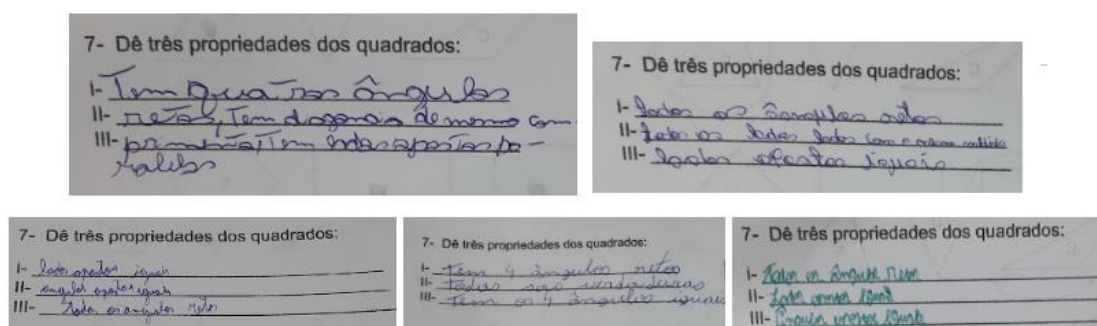 7- Dê três propriedades dos quadrados:
I- Tem quatro ângulos
II- retos, Tem diagonais de mesmo com
III- primento, Tem lados opostos pa-
ralelos
7- Dê três propriedades dos quadrados:
I- Todos os ângulos retos
II- Todos os lados com a mesma medida
III- lados opostos iguais
7- Dê três propriedades dos quadrados:
I- Lados opostos iguais
II- angulos opostos iguais
III- Todos os angulos retos
7- Dê três propriedades dos quadrados:
I- Tem 4 ângulos retos
II- Todas são verdadeiras
III- Tem os 4 ângulos iguais
7- Dê três propriedades dos quadrados:
I- Todos os ângulos Retos
II- Lados
III-